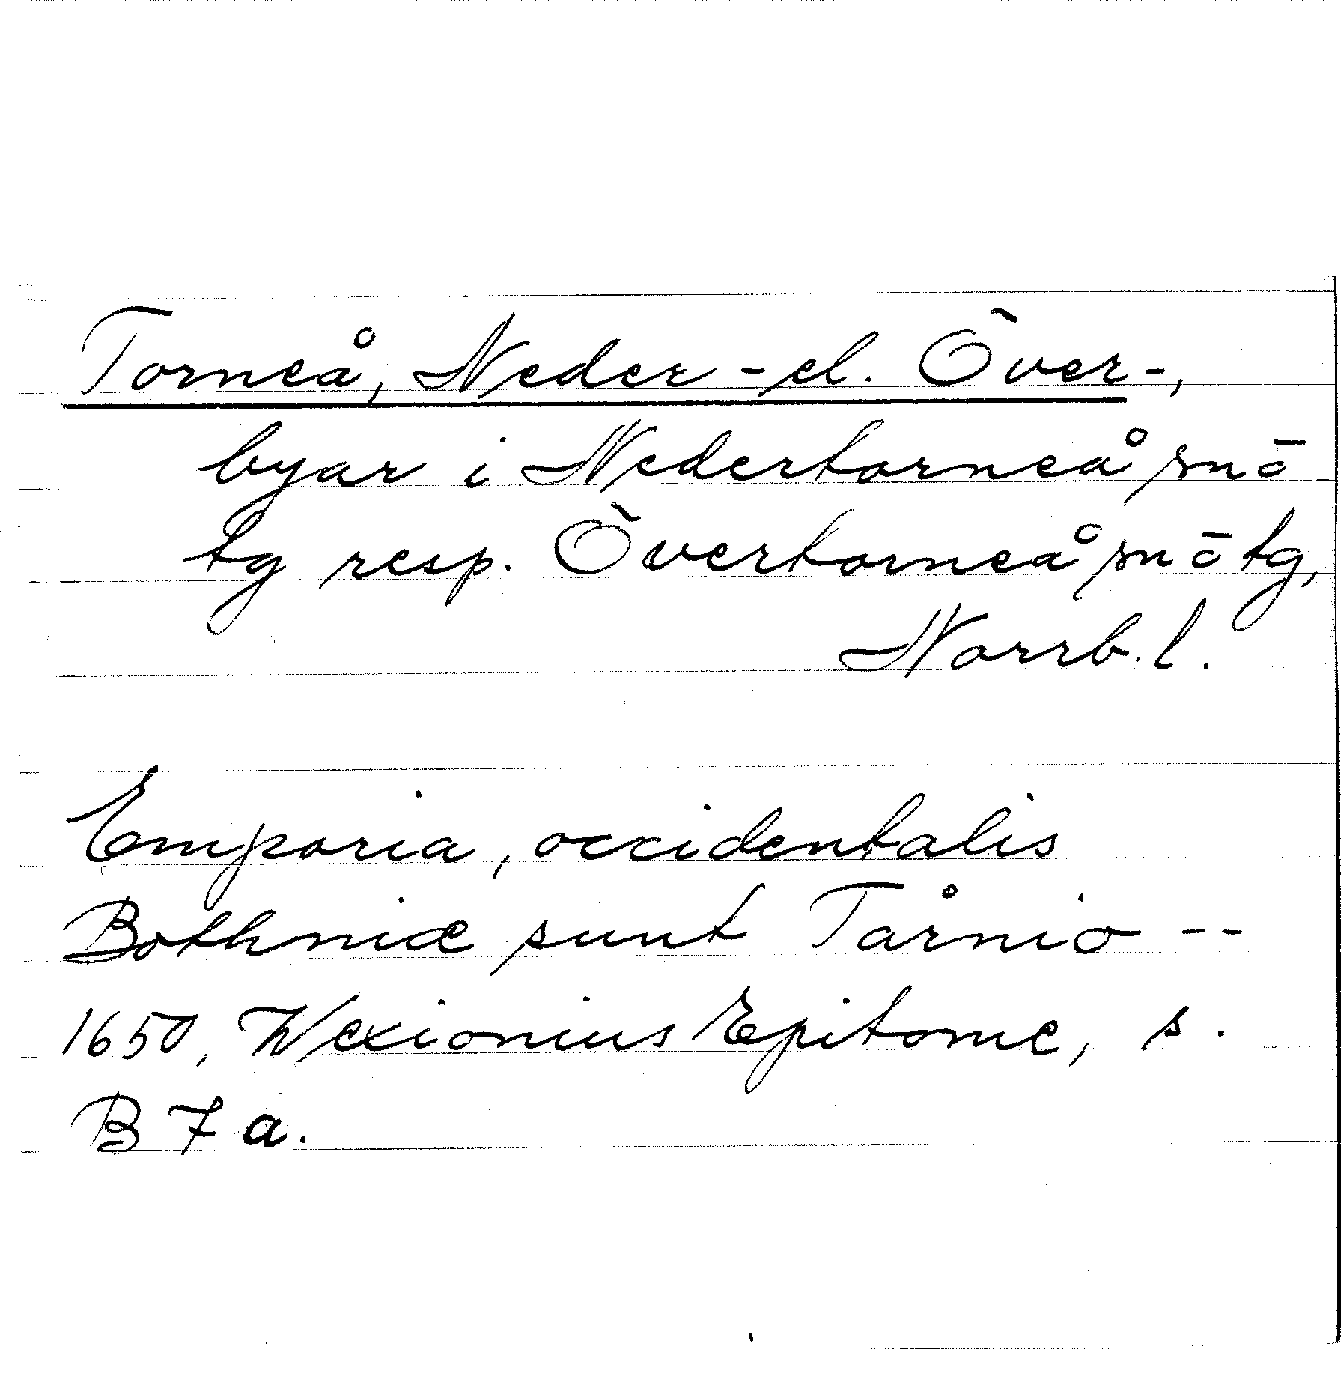 Torneå, Neder- el. Över-,
byar i Nedertorneå sn o
tg resp. Övertorneå sn o tg,
Norrb. l.
Emporia, occidentalis
Bothniæ sunt Tårnio --
1650, Wexionius Epitome, s.
B 7 a.